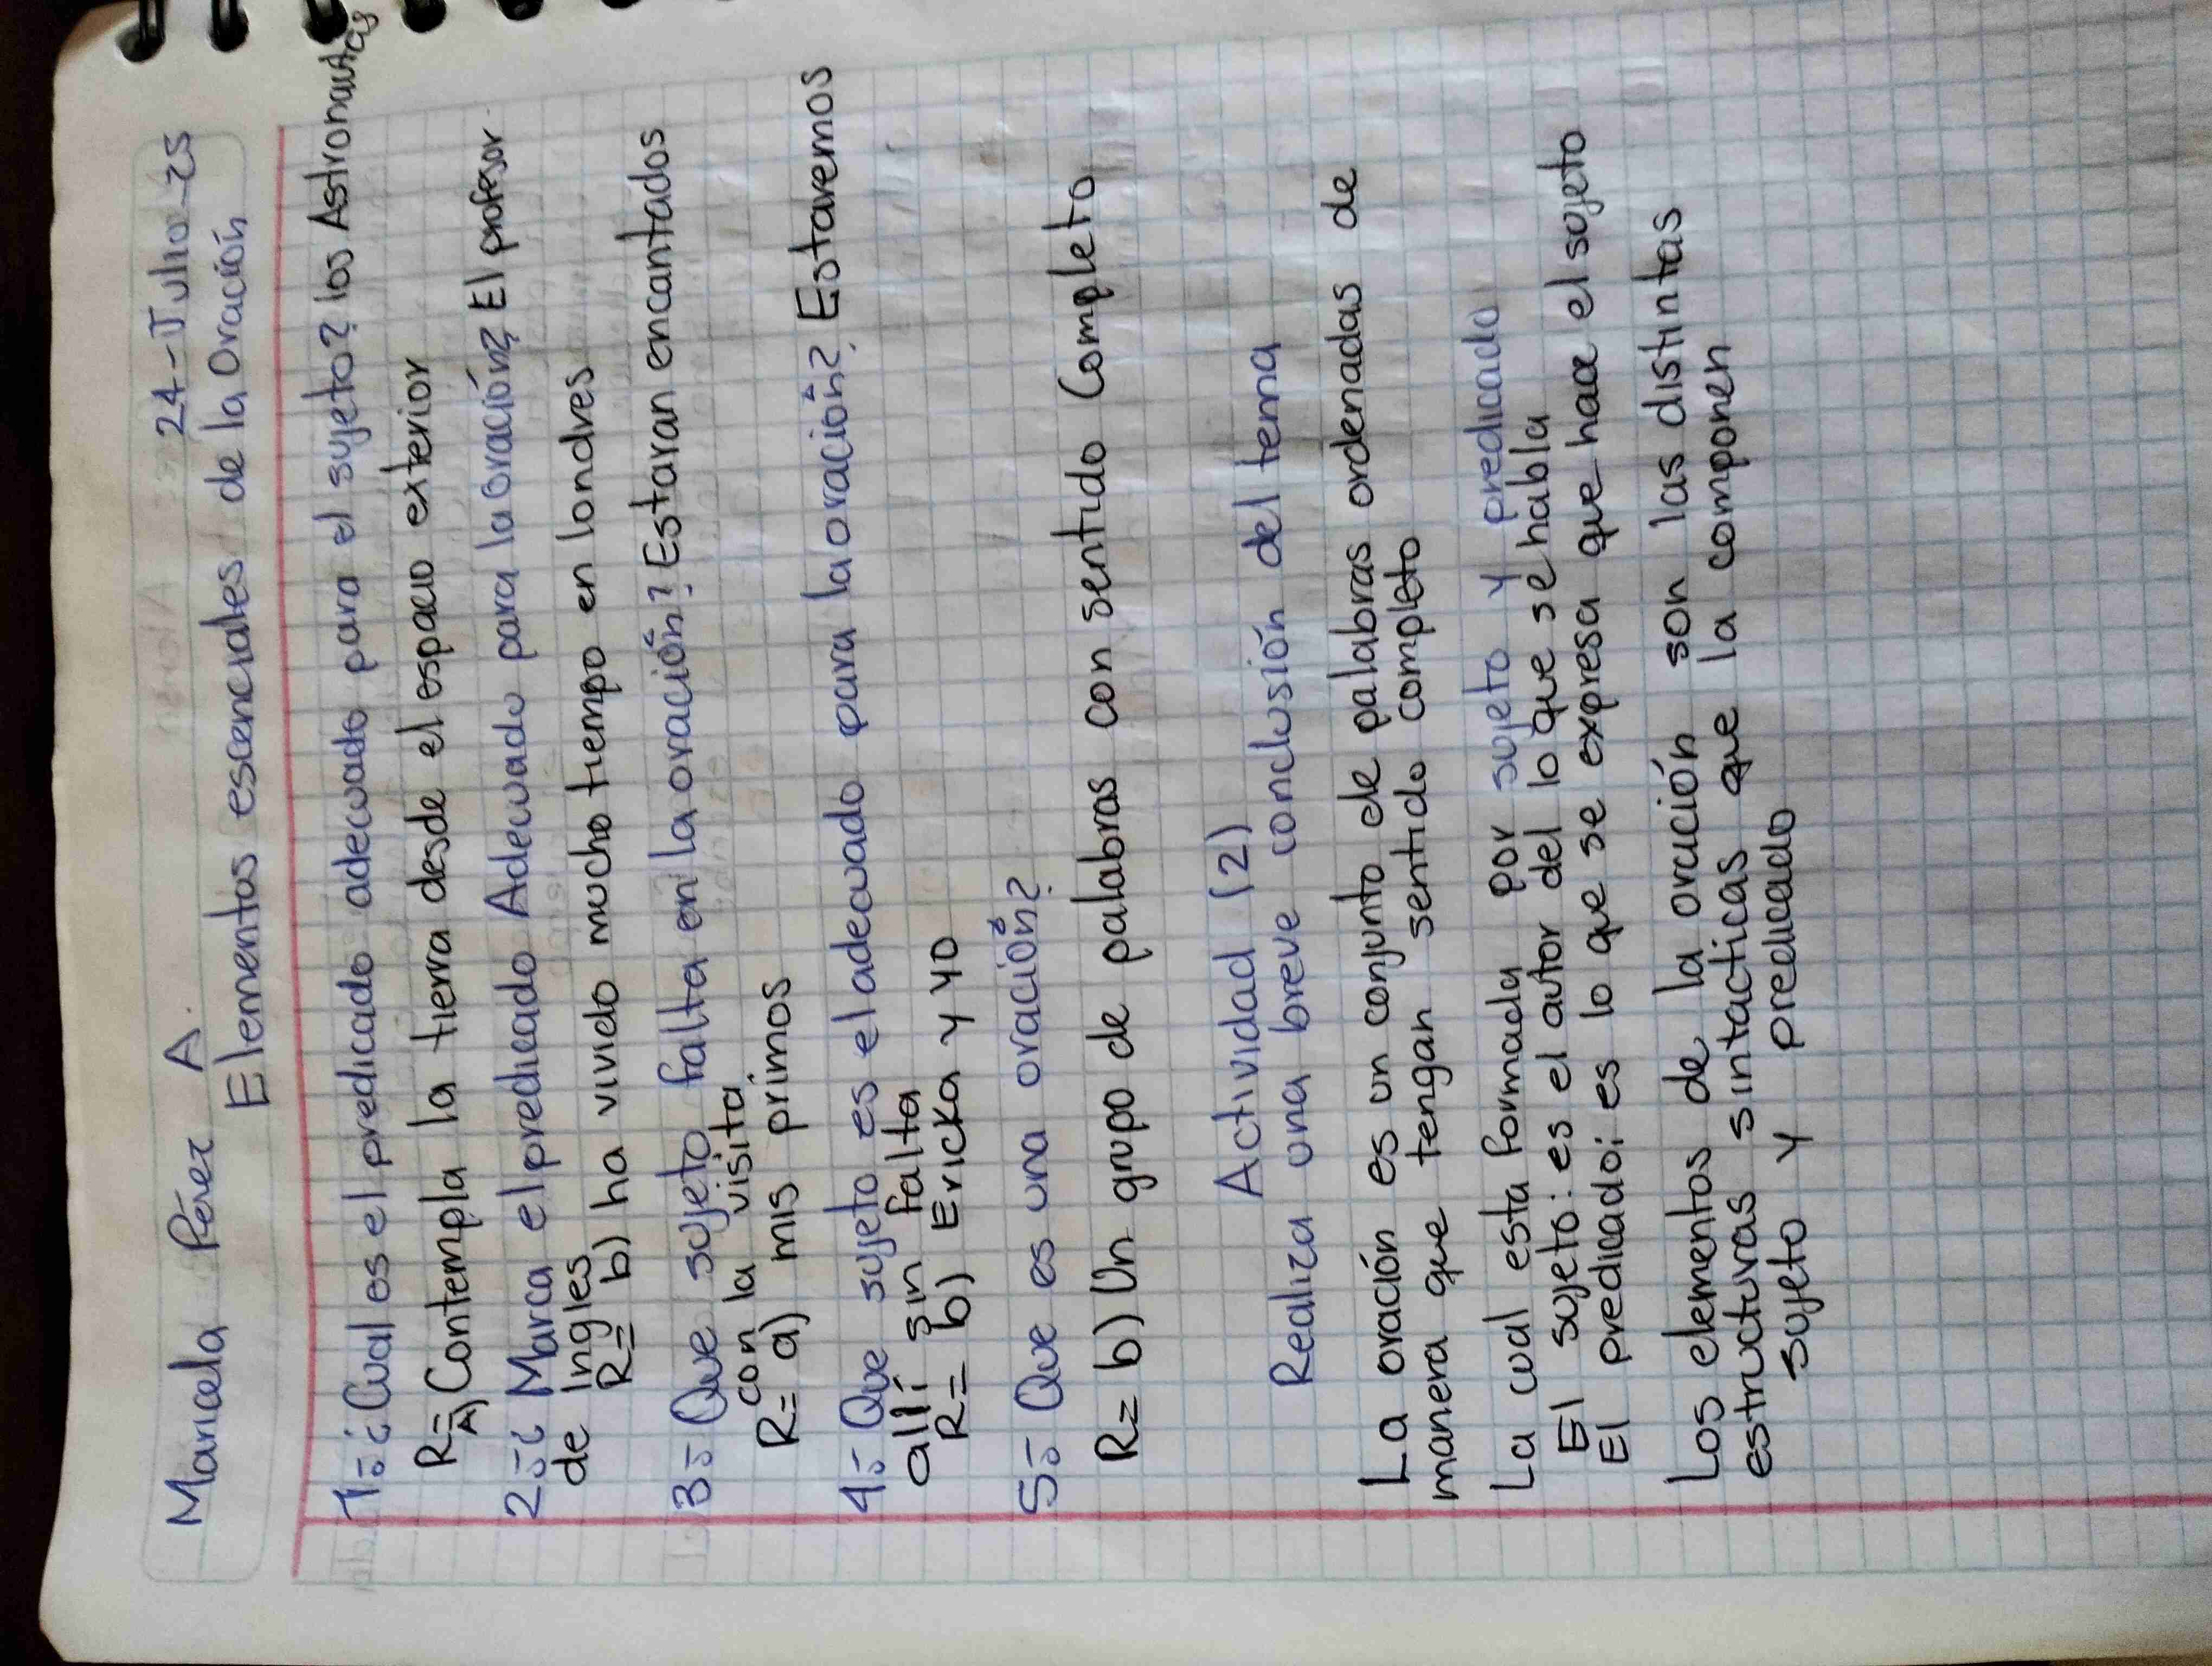 Maricela Pérez A. 24-Julio-25
Elementos escenciales de la Oración
1.-¿Cual es el predicado adecuado para el sujeto? los Astronautas
R= A) Contempla la tierra desde el espacio exterior
2.-¿ Marca el predicado Adecuado para la oración? El profesor
de Ingles
R= b) ha vivido mucho tiempo en londres
3.- Que sujeto falta en la oración? Estaran encantados
con la visita
R= a) mis primos
4.- Que sujeto es el adecuado para la oración? Estaremos
allí sin falta
R= b) Ericka y yo
5.- Que es una oración?
R= b) Un grupo de palabras con sentido Completo
Actividad (2)
Realiza una breve conclusión del tema
La oración es un conjunto de palabras ordenadas de
manera que tengan sentido completo
La cual esta formada por sujeto y predicado
El sujeto: es el autor del lo que se habla
El predicado: es lo que se expresa que hace el sujeto
Los elementos de la oración son las distintas
estructuras sintacticas que la componen
sujeto y predicado